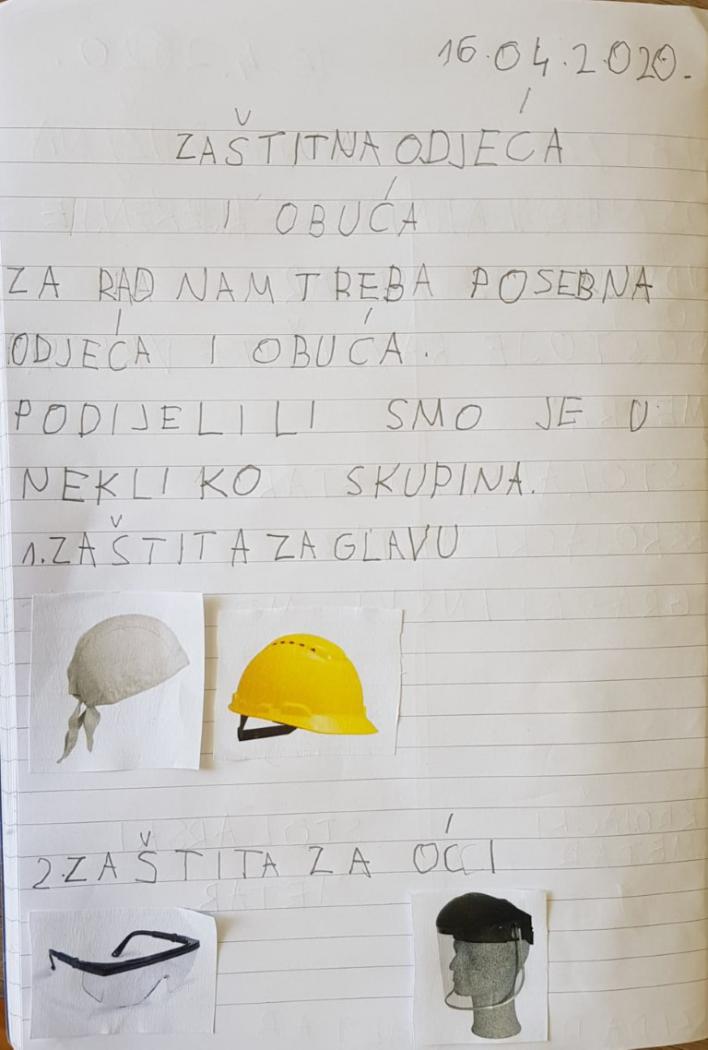 16.04.2020.
ZAŠTITNA ODJEĆA
I OBUĆA
ZA RAD NAM TREBA POSEBNA
ODJEĆA I OBUĆA.
PODIJELILI SMO JE U
NEKLIKO SKUPINA.
1.ZAŠTITA ZA GLAVU
2.ZAŠTITA ZA OĆI